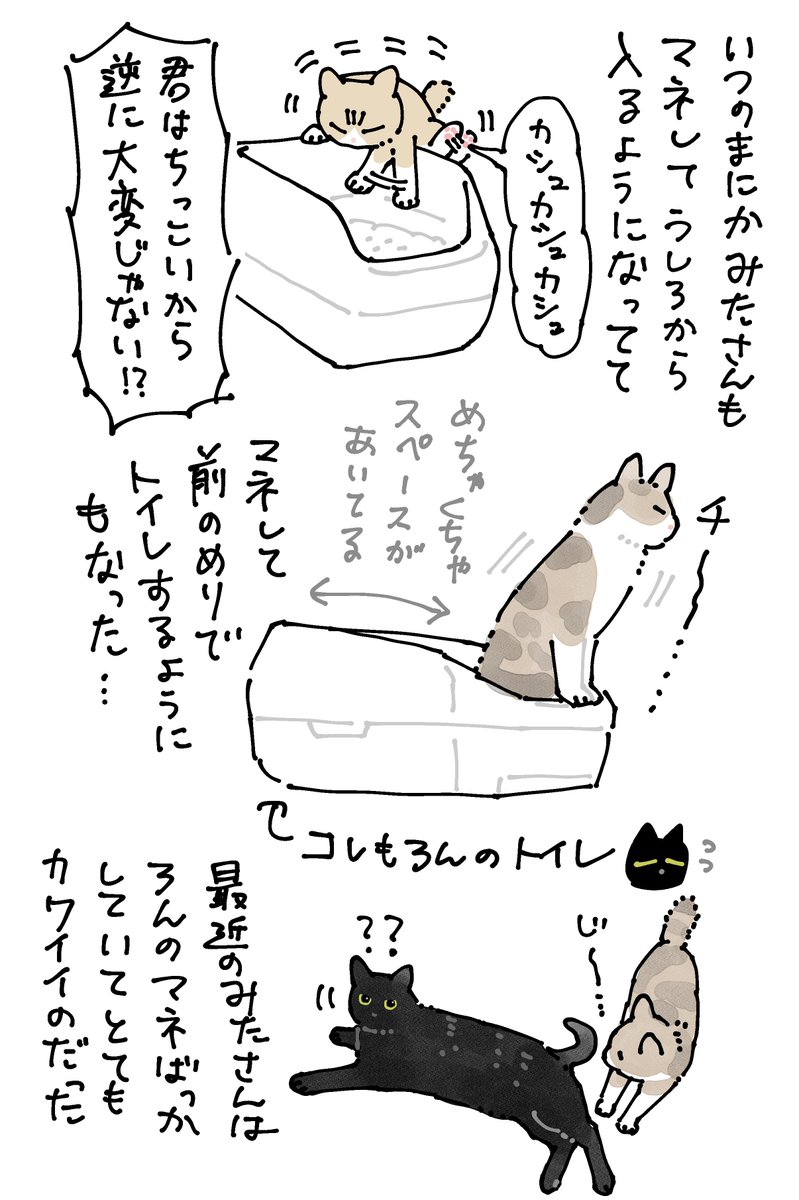 いつのまにかみたさんも
マネしてうしろから
入るようになってて
カシュカシュカシュ
君はちっこいから
逆に大変じゃない!?
チー〜…
めちゃくちゃ
スペースが
あいてる
マネして
前のめりで
トイレするように
もなった…
コレもろんのトイレ
っっ
じ〜…
??
最近のみたさんは
ろんのマネばっか
していてとても
カワイイのだった